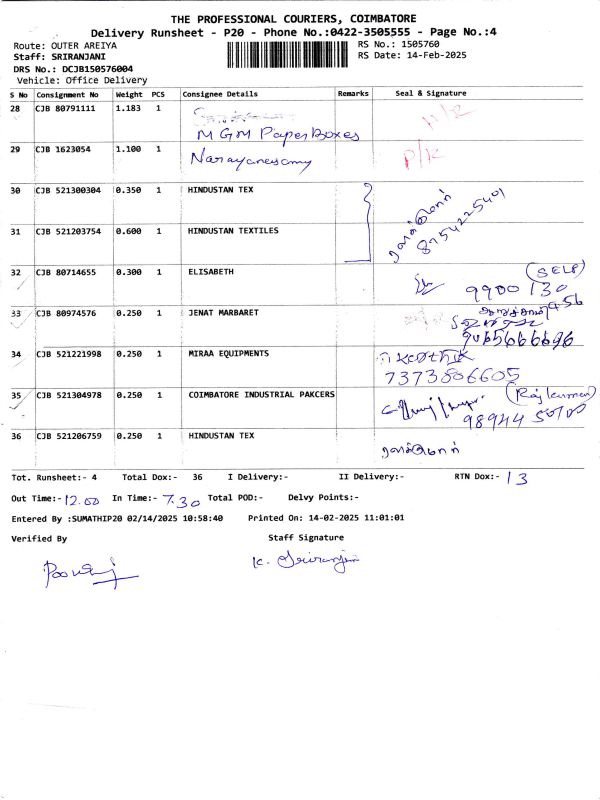 THE PROFESSIONAL COURIERS, COIMBATORE
Delivery Runsheet - P20 - Phone No.:0422-3505555 - Page No.:4
Route: OUTER AREIYA RS No.: 1505760
Staff: SRIRANJANI RS Date: 14-Feb-2025
DRS No.: DCJB150576004
Vehicle: Office Delivery
S No Consignment No Weight PCS Consignee Details Remarks Seal & Signature
28 CJB 80791111 1.183 1
MGM PaperBoxes
29 CJB 1623054 1.100 1 Narayanasamy P/K
30 CJB 521300304 0.350 1 HINDUSTAN TEX
31 CJB 521203754 0.600 1 HINDUSTAN TEXTILES
32 CJB 80714655 0.300 1 ELISABETH (SELF)
33 CJB 80974576 0.250 1 JENAT MARBARET
9065666696
34 CJB 521221998 0.250 1 MIRAA EQUIPMENTS
7373806605
35 CJB 521304978 0.250 1 COIMBATORE INDUSTRIAL PAKCERS (Rajkumar)
36 CJB 521206759 0.250 1 HINDUSTAN TEX
Tot. Runsheet:- 4 Total Dox:- 36 I Delivery:- II Delivery:- RTN Dox:- 13
Out Time:- 12.00 In Time:- 7.30 Total POD:- Delvy Points:-
Entered By :SUMATHIP20 02/14/2025 10:58:40 Printed On: 14-02-2025 11:01:01
Verified By Staff Signature
K. Sriranjani